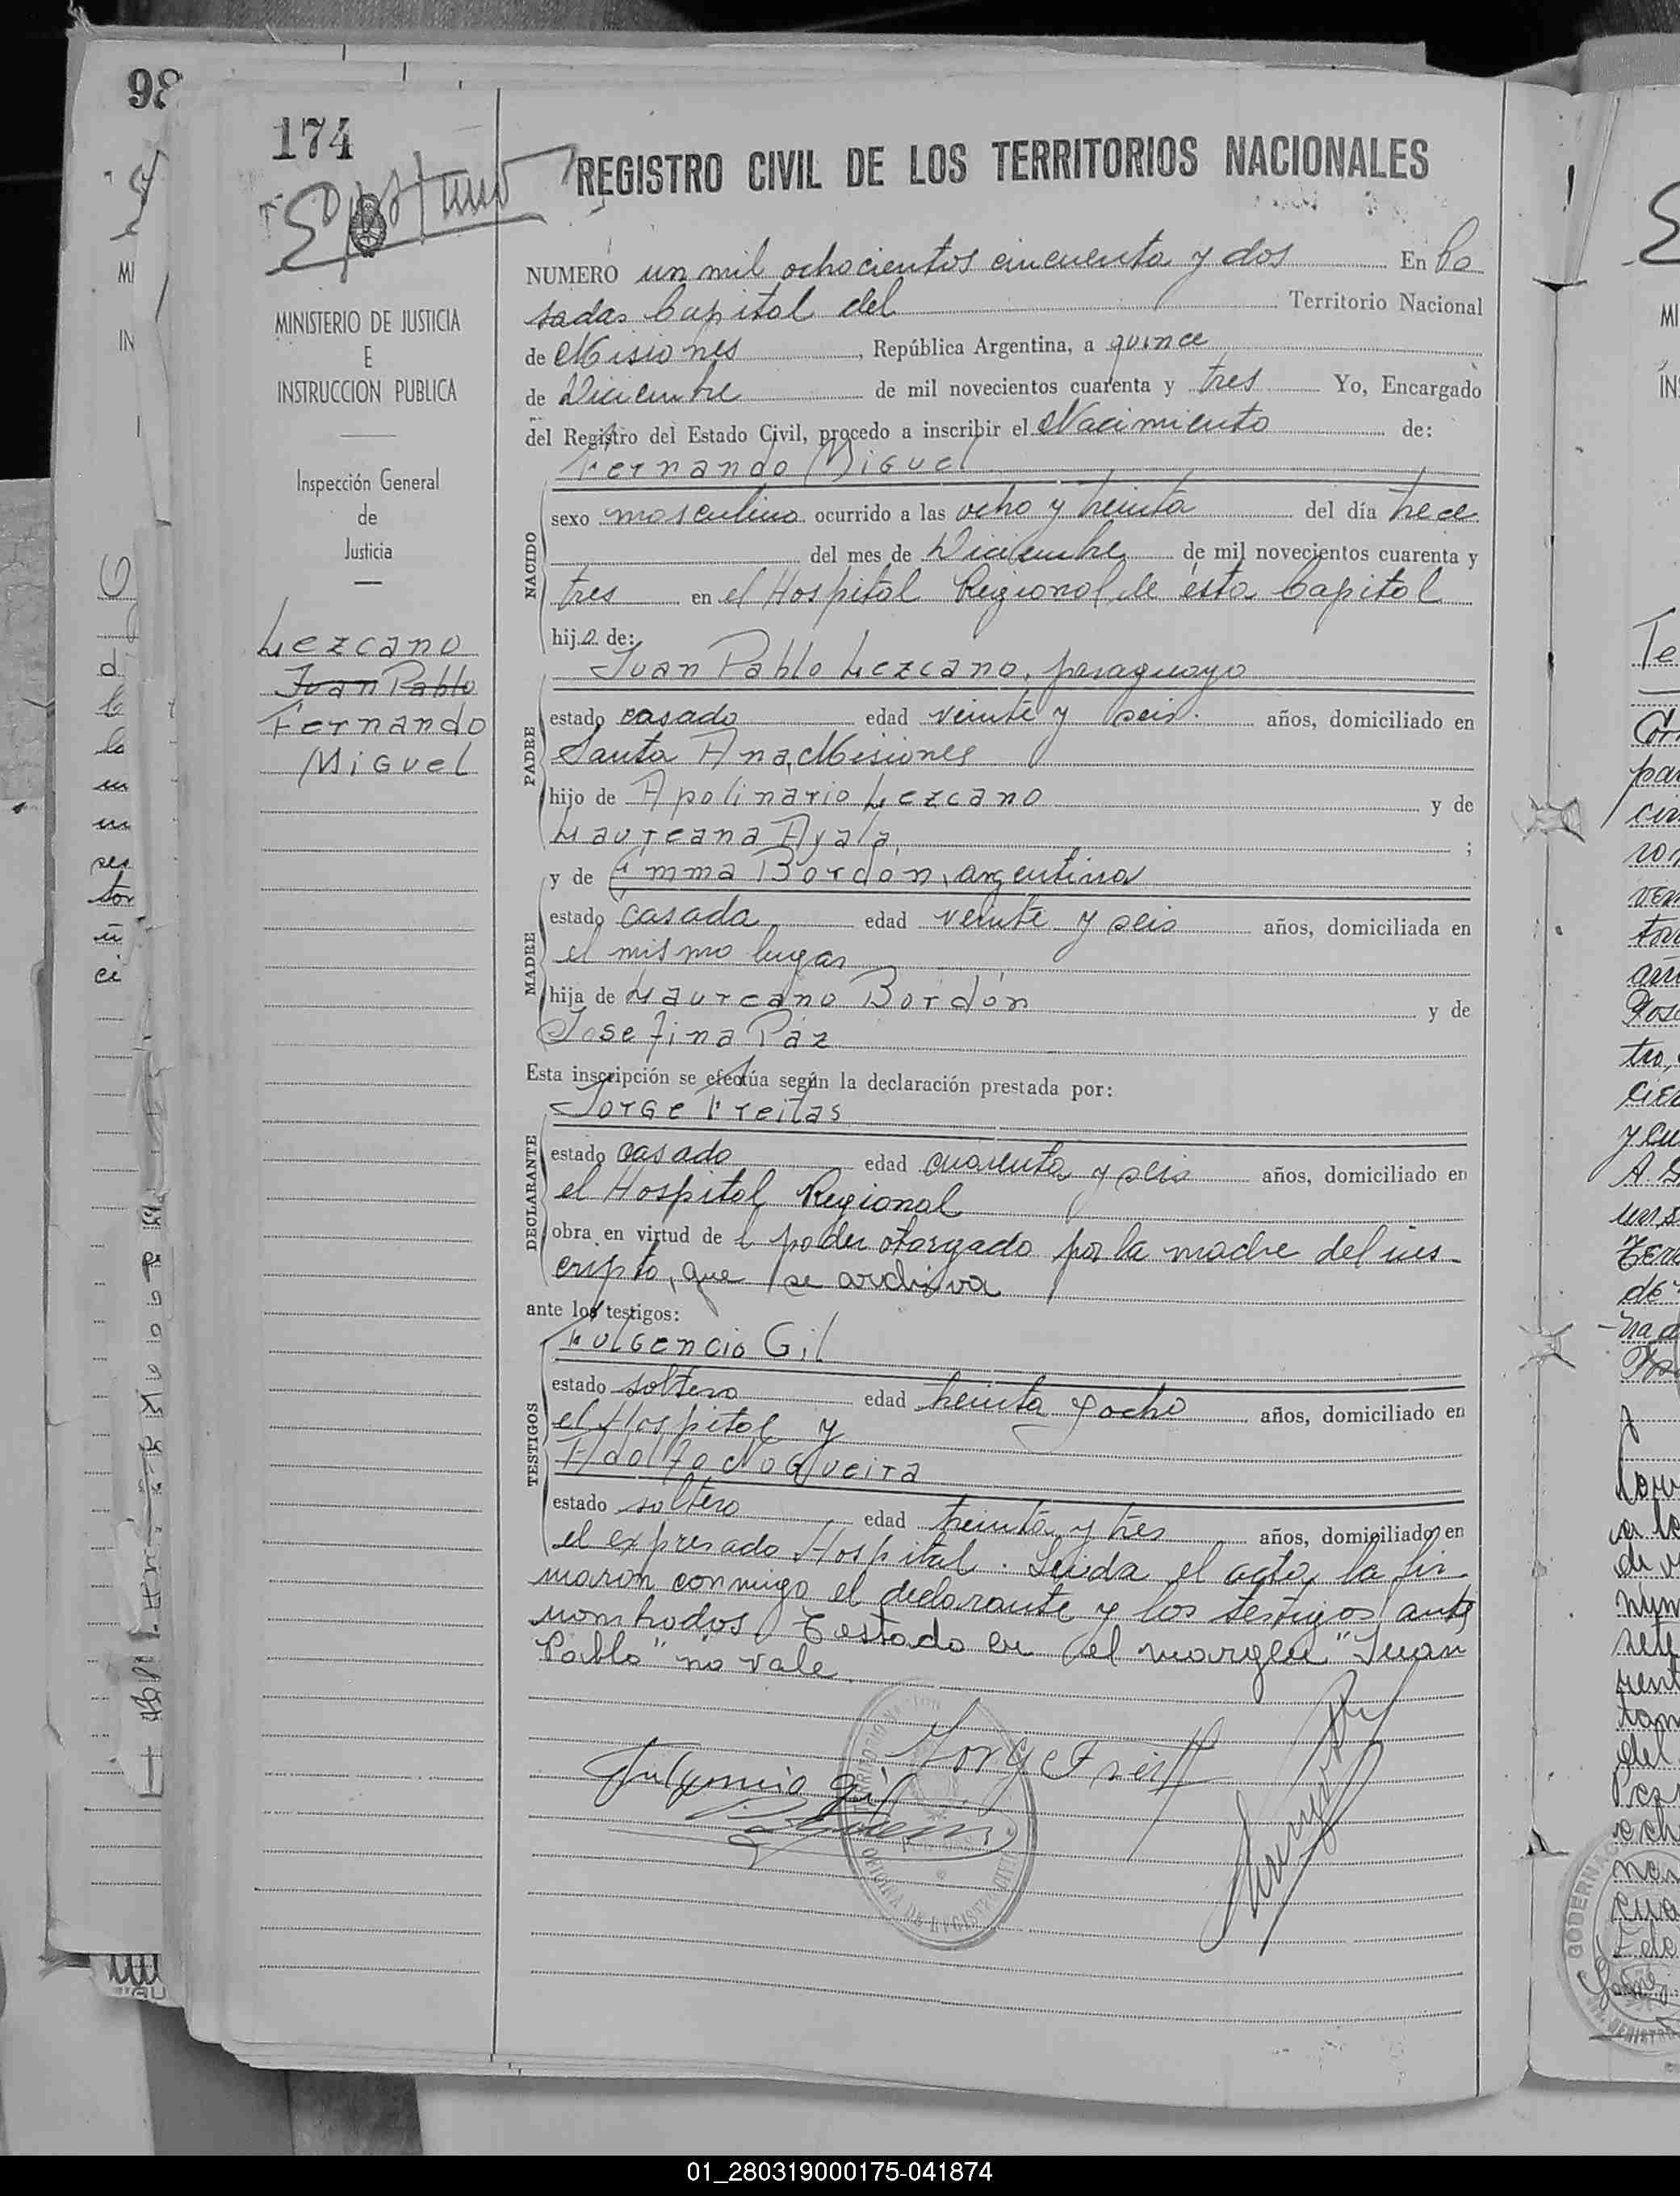 98
174
REGISTRO CIVIL DE LOS TERRITORIOS NACIONALES
MINISTERIO DE JUSTICIA
E
INSTRUCCION PUBLICA
Inspección General
de
Justicia
Lezcano
Juan Pablo
Fernando
Miguel
NUMERO un mil ochocientos cincuenta y dos En Po
sadas Capital del Territorio Nacional
de Misiones, República Argentina, a quince
de Diciembre de mil novecientos cuarenta y tres Yo, Encargado
del Registro del Estado Civil, procedo a inscribir el Nacimiento de:
Fernando Miguel
NACIDO
sexo masculino ocurrido a las ocho y treinta del día trece
del mes de Diciembre de mil novecientos cuarenta y
tres en el Hospital Regional de ésta Capital
hijo de:
Juan Pablo Lezcano, paraguayo
PADRE
estado casado edad veinte y seis. años, domiciliado en
Santa Ana, Misiones
hijo de Apolinario Lezcano y de
Laureana Ayala, ;
y de Emma Bordón, argentina
MADRE
estado casada edad veinte y seis años, domiciliada en
el mismo lugar
hija de Laureano Bordón y de
Josefina Páz
Esta inscripción se efectúa según la declaración prestada por:
Jorge Freitas
DECLARANTE
estado casado edad cuarenta y seis años, domiciliado en
el Hospital Regional
obra en virtud de l poder otorgado por la madre del ins-
cripto, que se archiva
ante los testigos:
Fulgencio Gil
TESTIGOS
estado soltero edad treinta y ocho años, domiciliado en
el Hospital y
Adolfo Nogueira
estado soltero edad treinta y tres años, domiciliado en
el expresado Hospital. Leida el acta, la fir-
maron conmigo el declarante y los testigos ante
nombrados. Testado en el margen "Juan
Pablo" no vale
Fulgencio Gil
Jorge Freitas
01_280319000175-041874